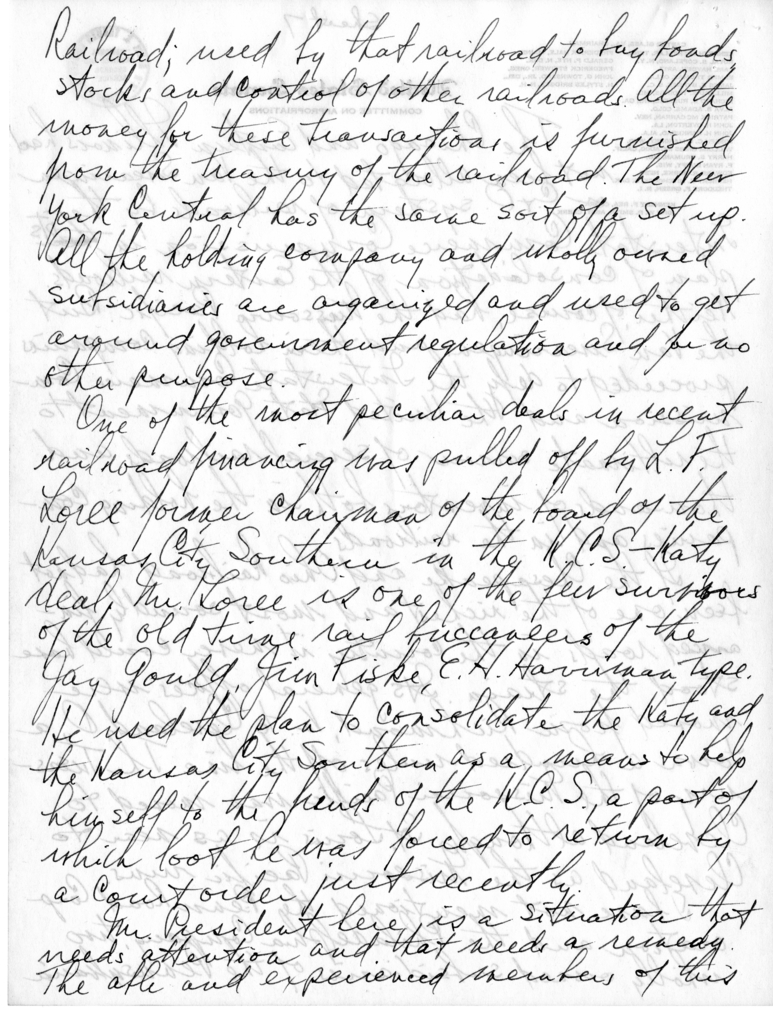 Railroad; used by that railroad to buy bonds,
stocks and control of other railroads. All the
money for these transactions is furnished
from the treasury of the railroad. The New
York Central has the same sort of a set up.
All the holding company and wholly owned
subsidiaries are organized and used to get
around government regulation and for no
other purpose.
One of the most peculiar deals in recent
railroad financing was pulled off by L. F.
Loree former chairman of the board of the
Kansas City Southern in the K.C.S.-Katy
deal. Mr. Loree is one of the few survivors
of the old time rail buccaneers of the
Jay Gould, Jim Fiske, E. H. Harriman type.
He used the plan to consolidate the Katy and
the Kansas City Southern as a means to help
himself to the funds of the K.C.S., a part of
which loot he was forced to return by
a Court order just recently.
Mr. President here is a situation that
needs attention and that needs a remedy.
The able and experienced members of this